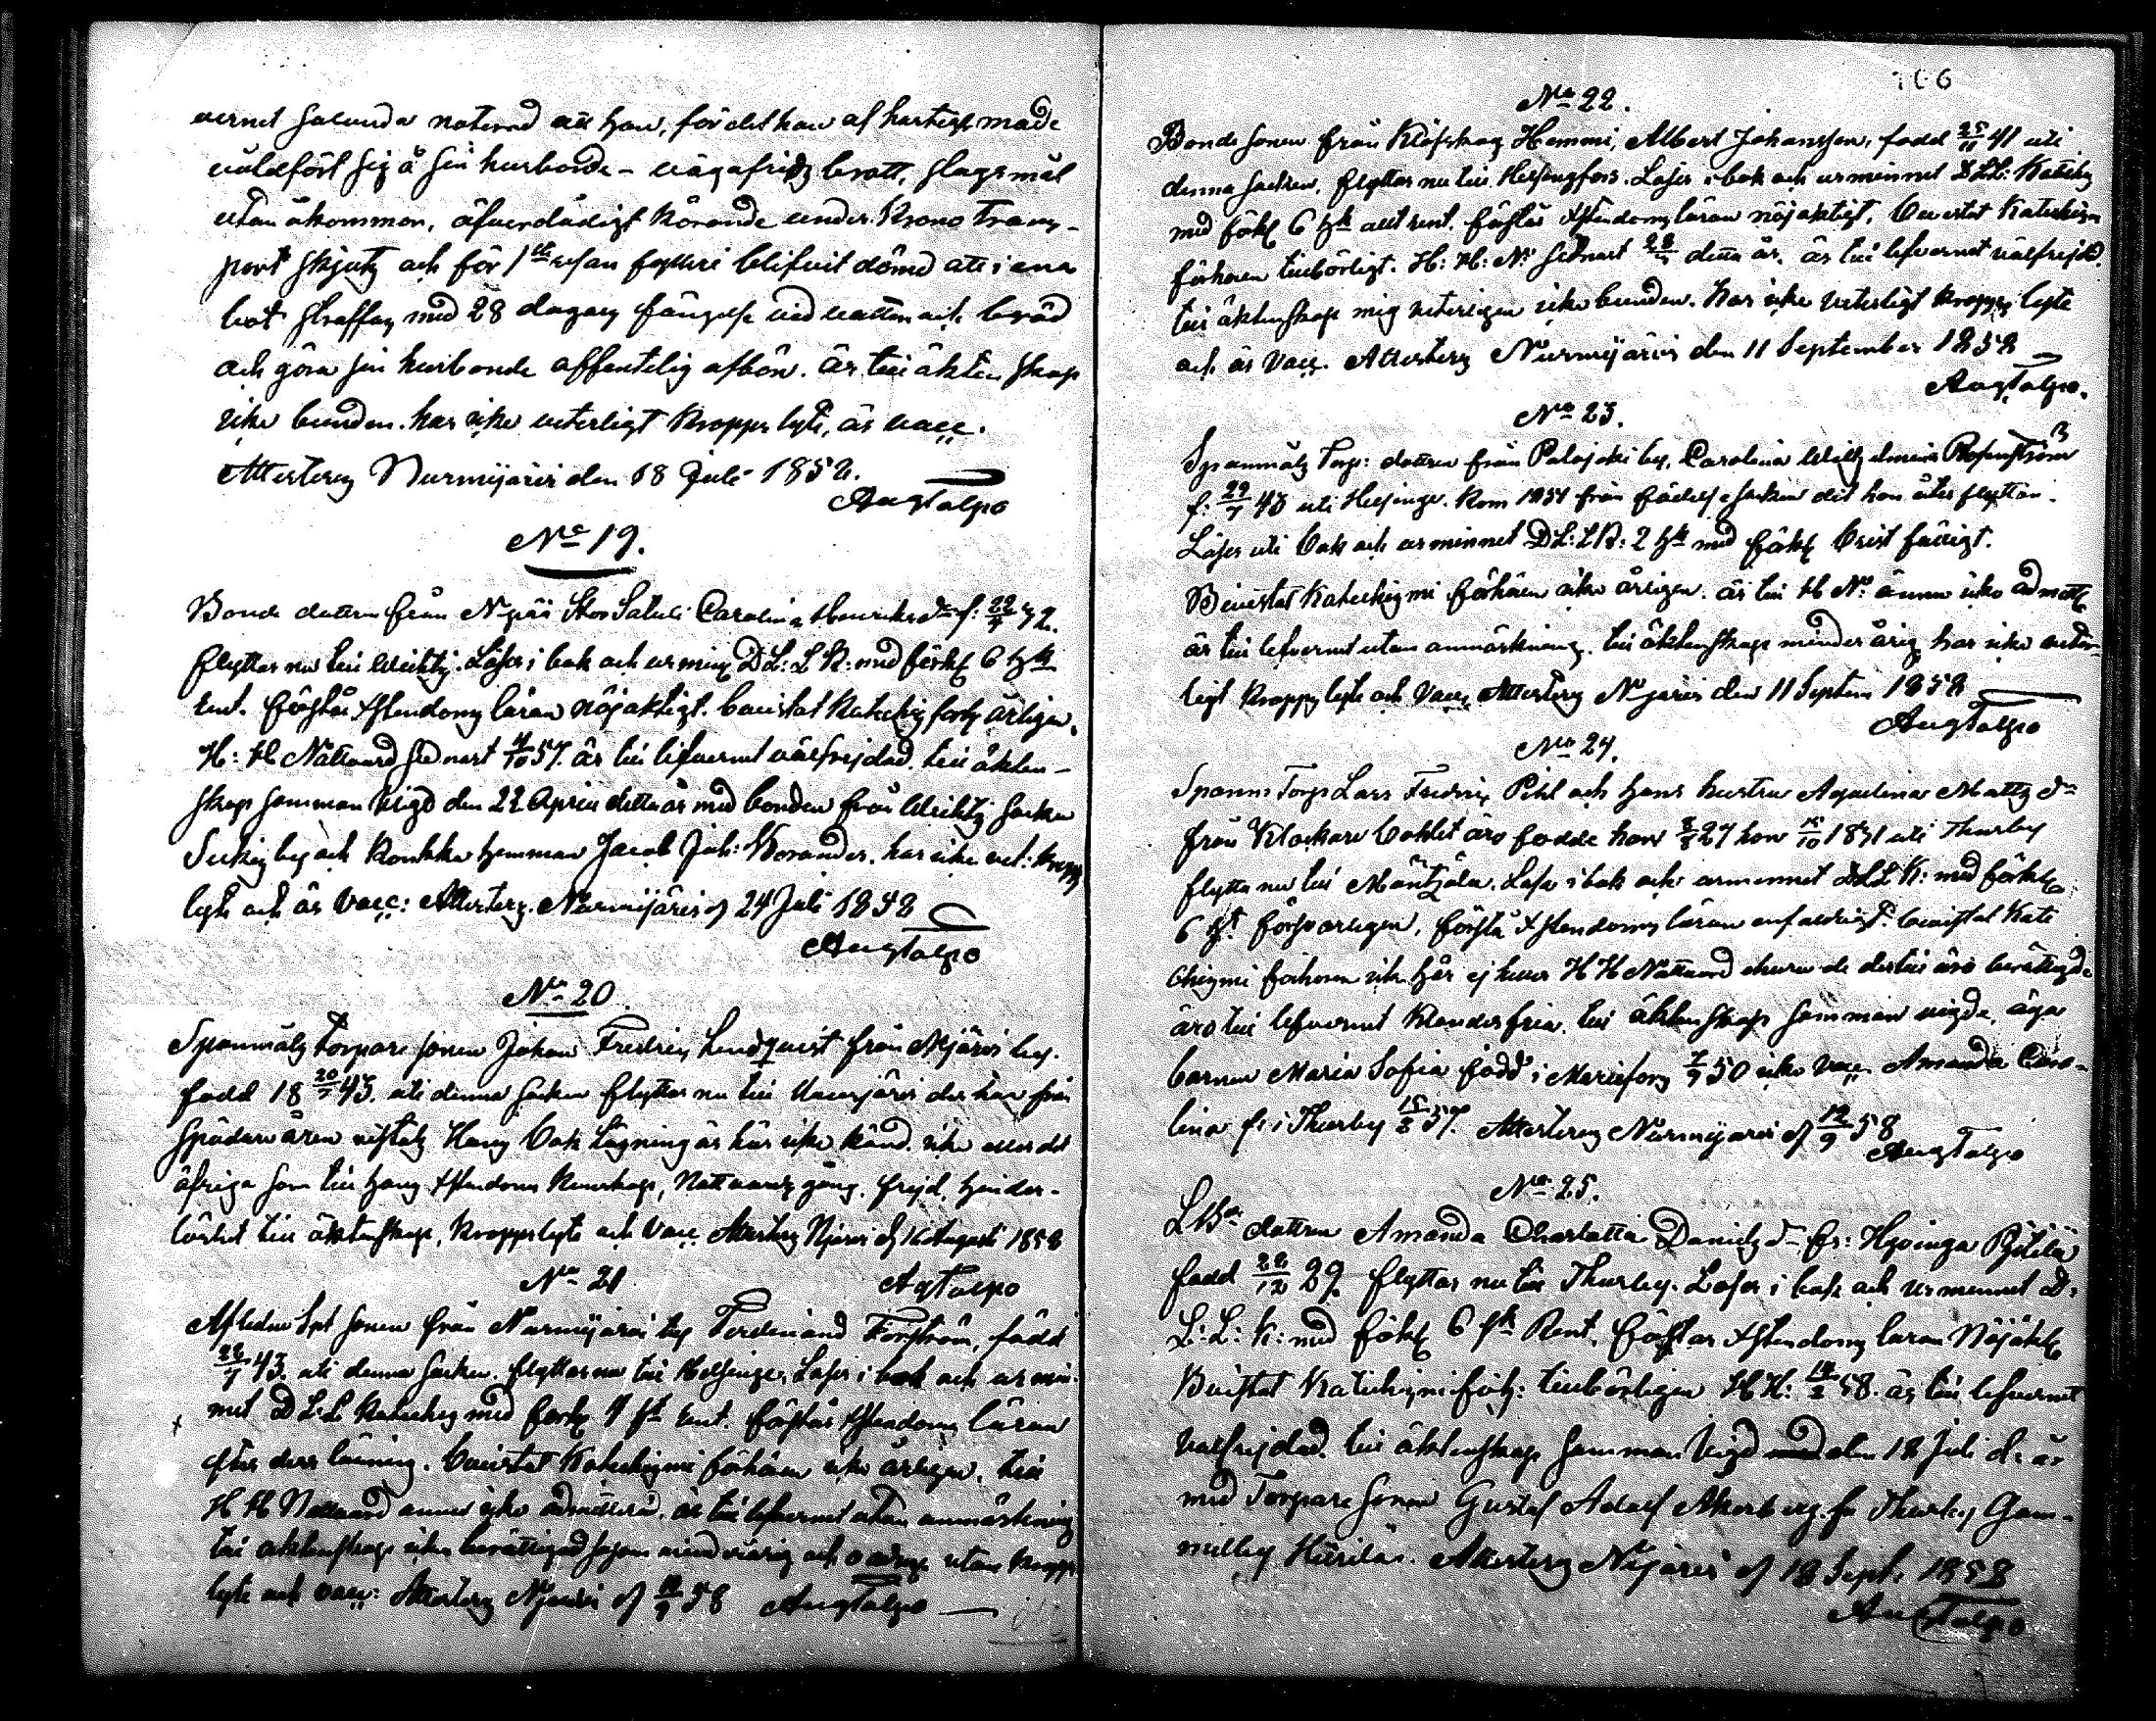 vernet sålunda noterad att han, för det han af hastigt mode
våldfört sig å sin husbonde - vägafrids brott, slagsmål
utan åkommor, öfverdådigt körande under Krono Trans-
port skjuts och för 1sta resan fylleri blifvit dömd att i ena
bot straffas med 28 dagars fängelse vid vatten och bröd
och göra sin husbonde offentelig afbön. är till äktenskap
icke bunden. har icke veterligt kropps lyte, är vacc.
Attesteras Nurmijärvi den 18 Juli 1858.
AugTalpo
No 19.
Bonde dottren från Njärvi Stor Satuli Carolina Henriksdr f. 22/4 32.
flyttar nu till Wichtis. Läser i bok och ur minne D L: L K: med förkl 6 hst
rent. förstår Xstendoms läran nöjaktigt. bevistat Katechis förh årligen.
H: H Nattvard sednast 4/10 57. är till lefvernet välfrejdad. till äkten-
skap samman vigd den 22 April detta år med bonden från Wichtis socken
by och hemman Jacob Joh: har icke vet: kropps
lyte och är vacc: Attesteras. Nurmijärvi d 24 Juli 1858
AugTalpo
No 20
Spanmåls torpare sonen Johan Fredric Lindqvist från Njärvi by.
född 18 20/7 43. uti denna socken flyttar nu till der han från
spädare åren vistats Hans bok läsning är här icke känd. icke eller det
öfriga som till hans Xstendoms kunskap, Nattvards gång, frejd, hinder-
löshet till äktenskap, kroppslyte och vacc. Attesteras Njärvi d 16 Augusti 1858
AgTalpo
No 21
Afledne sonen från Nurmijärvi by Ferdinand Forström, född
22/7 43. uti denna socken. flyttar nu till Helsinge. Läser i bok och ur min-
net D L: L Kateches med förkl 4 st rent. förstår Xstendoms läran
efter dess läsning. bevistat Katechismi förhören icke årligen. till
H H Nattvard ännu icke admitterad. är till lefvernet utan anmärkning
till äktenskap icke berättigad såsom minderårig och utan kropps
lyte och vacc: Attesteras Njärvi d 12/9 58 AugTalpo
166
No 22.
Bonde sonen från Klöfskog Hemmi, Albert Johansson, född 25/11 41 uti
denna socken, flyttar nu till Helsingfors. Läser i bok och ur minnet D LL: Kateches
med förkl 6 hst allt rent. förstår Xstendoms läran nöjaktigt. bevistat Katechism
förhören tillbörligt. H: H: N: sednast detta år. är till lefvernet välfrejd.
till äktenskap mig veterligen icke bunden. har icke veterligt kropps lyte
och är vacc. Attesteras Nurmijärvi den 11 September 1858
AugTalpo.
No 23.
Spanmåls Torp: dottren från Palojoki by, Carolina Wilhelmina Rosenström
f: 29/7 43 uti Helsinge. kom 1854 från födelse socken dit hon åter flyttar.
Läser uti bok och ur minnet D L: L K: 2 hst med förkl brist fälligt.
Bevistat Katechismi förhören icke årligen. är till H N: ännu icke admitt
är till lefvernet utan anmärkning. till äktenskap minderårig har icke veter-
ligt kropps lyte och vacc. Attesteras Njärvi den 11 Septem 1858
AugTalpo
No 24.
Spanm: Torp Lars Fredric Pihl och hans hustru Aquelina Matts dr
från Klockare bohlet äro födde han 8/5 27 hon 1831 uti Thusby
flytta nu till Mäntzälä. Läsa i bok och ur minnet D L L K: med förkl
6 st försvarligen, förstå Xstendoms läran enfaldigt. bevistat Kate
chismi förhören icke här ej heller H H Nattvard ehuru de dertill äro berättigade
äro till lefvernet klanderfria. till äktenskap samman vigde, äga
barnen Maria Sofia född i 7/9 50 icke vacc. Amanda Caro-
lina f: i Thusby 15/8 57. Attesteras Nurmijärvi d 12/9 58
AugTalpo
No 25.
dottren Amanda Charlotta Daniels dr fr: Hyvinge
född 22/12 29 flyttar nu till Thusby. Läser i bok och ur minnet D:
L: L: K: med förkl 6 st Rent. förstår Xstendoms läran Nöjakl
Bevistat Katechismi förh: tillbörligen H H: 14/2 58. är till lefvernet
välfrejdad. till äktenskap samman vigd den 18 Juli d: år
med Torpare sonen Gustaf Adolf Åkerberg fr Thusby Gam-
melby Attesteras Njärvi d 18 Sept. 1858
AugTalpo